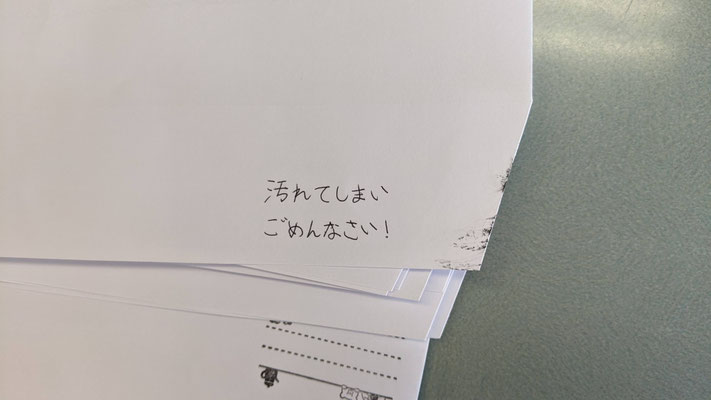 汚れてしまい
ごめんなさい!